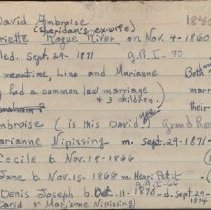 David Ambroise 18
(Sheridan's ex-wife)
riette Rogue River on Nov. 4-1860
Med. Sept. 29- 1871 G.R. I-70
meantime, Lino and Marianne Both
had a common law marriage mar
& 3 children) their
Ambroise (is this David) Grand Ron
Marianne Nipissing m. Sept. 29-1871
Cecile b Nov. 18-1866
Jane b. Nov. 15- 1868 m Henri Petit
Denis Joseph b. Oct. 11-1870-d. Sept. 29
David & Marianne Nipissing) 1874